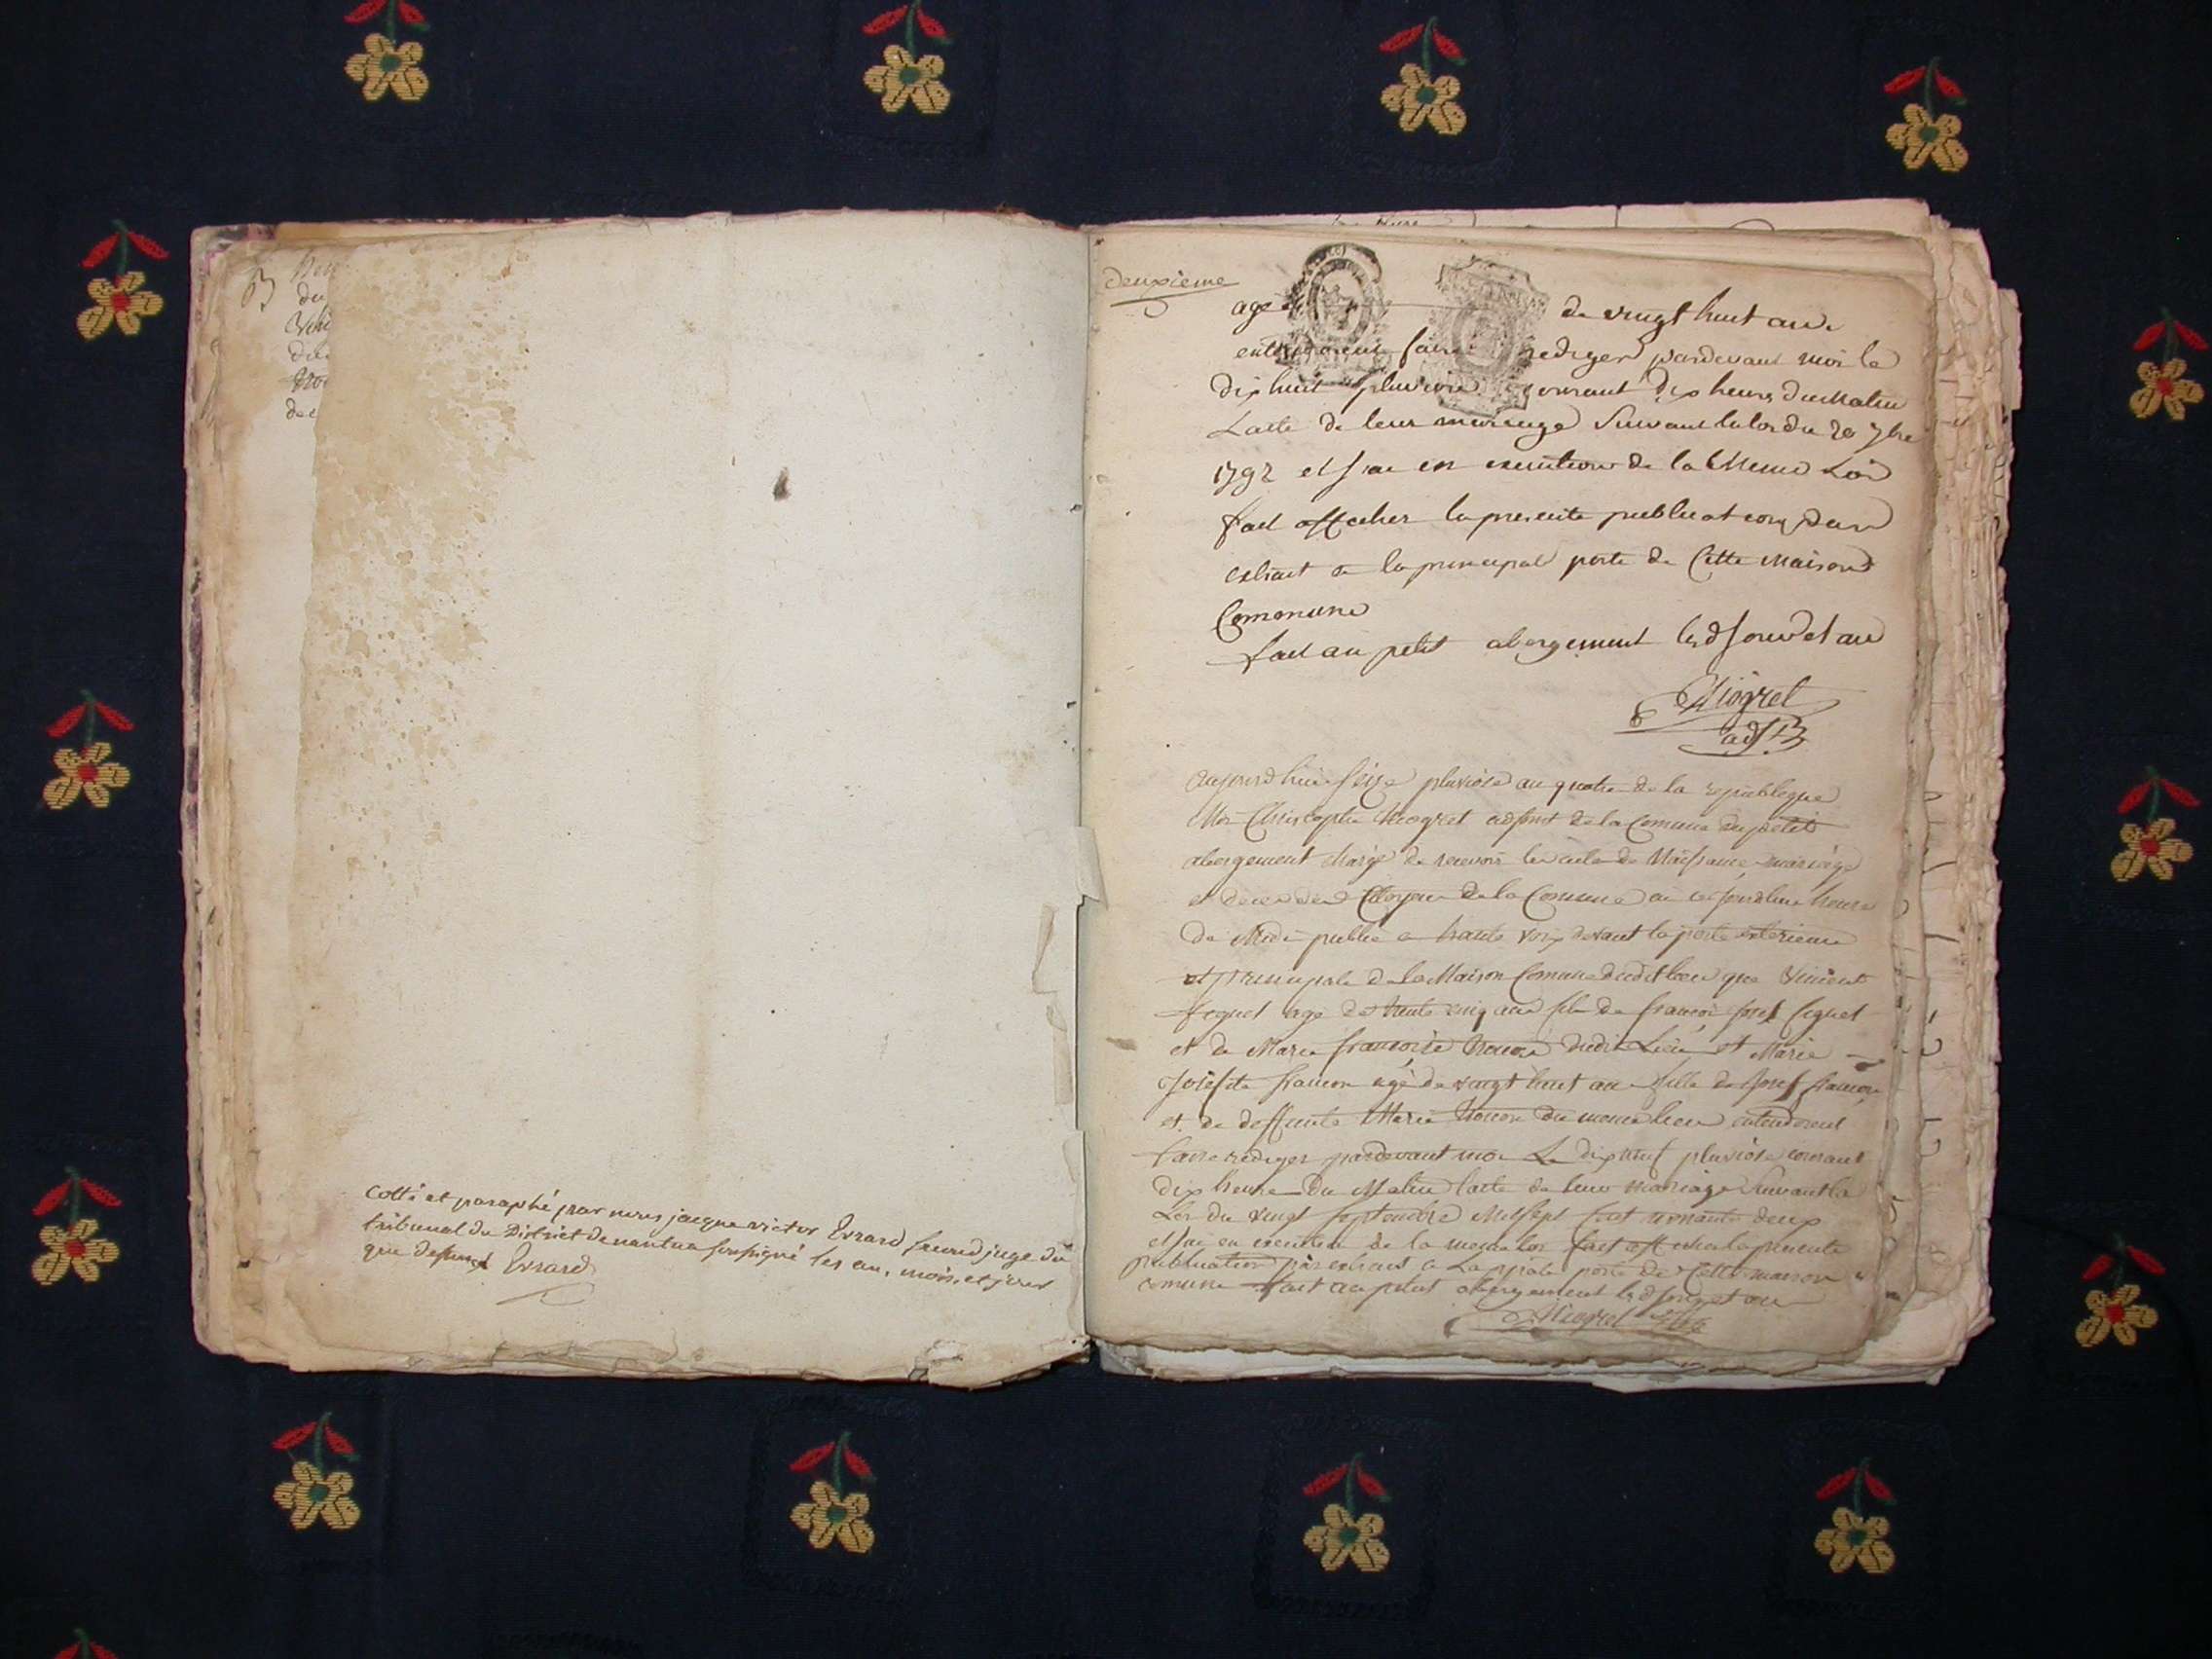 B
du
cotté et paraphé par nous jacque victor Errard second juge du
tribunal du District de nantua soussigné les an, mois, et jour
que dessus Errard
deuxième
agé de vingt huit ans
entendroient faire rediger pardevant moi le
dix huit pluviose courant dix heures du Matin
Lacte de leur mariage Suivant la loi du 20 7bre
1792 et jai en execution de la Meme Loi
fait afficher la presente publication par
extrait a la principal porte de Cette Maison
Commune
fait au petit abergement led jour et an
Niogret
adjt
aujourdhui seize pluviose an quatre de la republique
Moi Christophe Niogret adjoint de la Comune du petit
abergement charge de recevoir les acte de Naissance mariage
et deces des Citoyens de la Commune ai ce jourdhui heure
de Midi publie a haute voix devant la porte exterieure
et principale de la Maison Comune dudit lieu que Vincent
age de trente cinq ans fils de francois josef
et de Marie francoise dudit Lieu et Marie
Josefte francon agé de vingt huit ans fille de Josef francon
et de deffunte Marie du meme lieu entendroient
faire rediger pardevant moi Le dix neuf pluviose courant
dix heure du Matin lacte de leur mariage Suivant la
Loi du vingt septembre Mil sept Cent nonante deux
et jai en execution de la meme loi fait afficher la presente
publication par extrait a La pple porte de Cette maison
comune fait au petit abergement led jour et an
Niogret